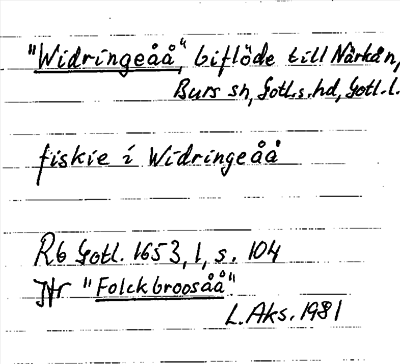 "Widringeåå", biflöde till Närkån,
Burs sn, Gotl.s.hd, Gotl.l.
fiskie i Widringeåå
Rb Gotl. 1653, 1, s. 104
Jfr "Folckbroosåå"
L. Aks. 1981